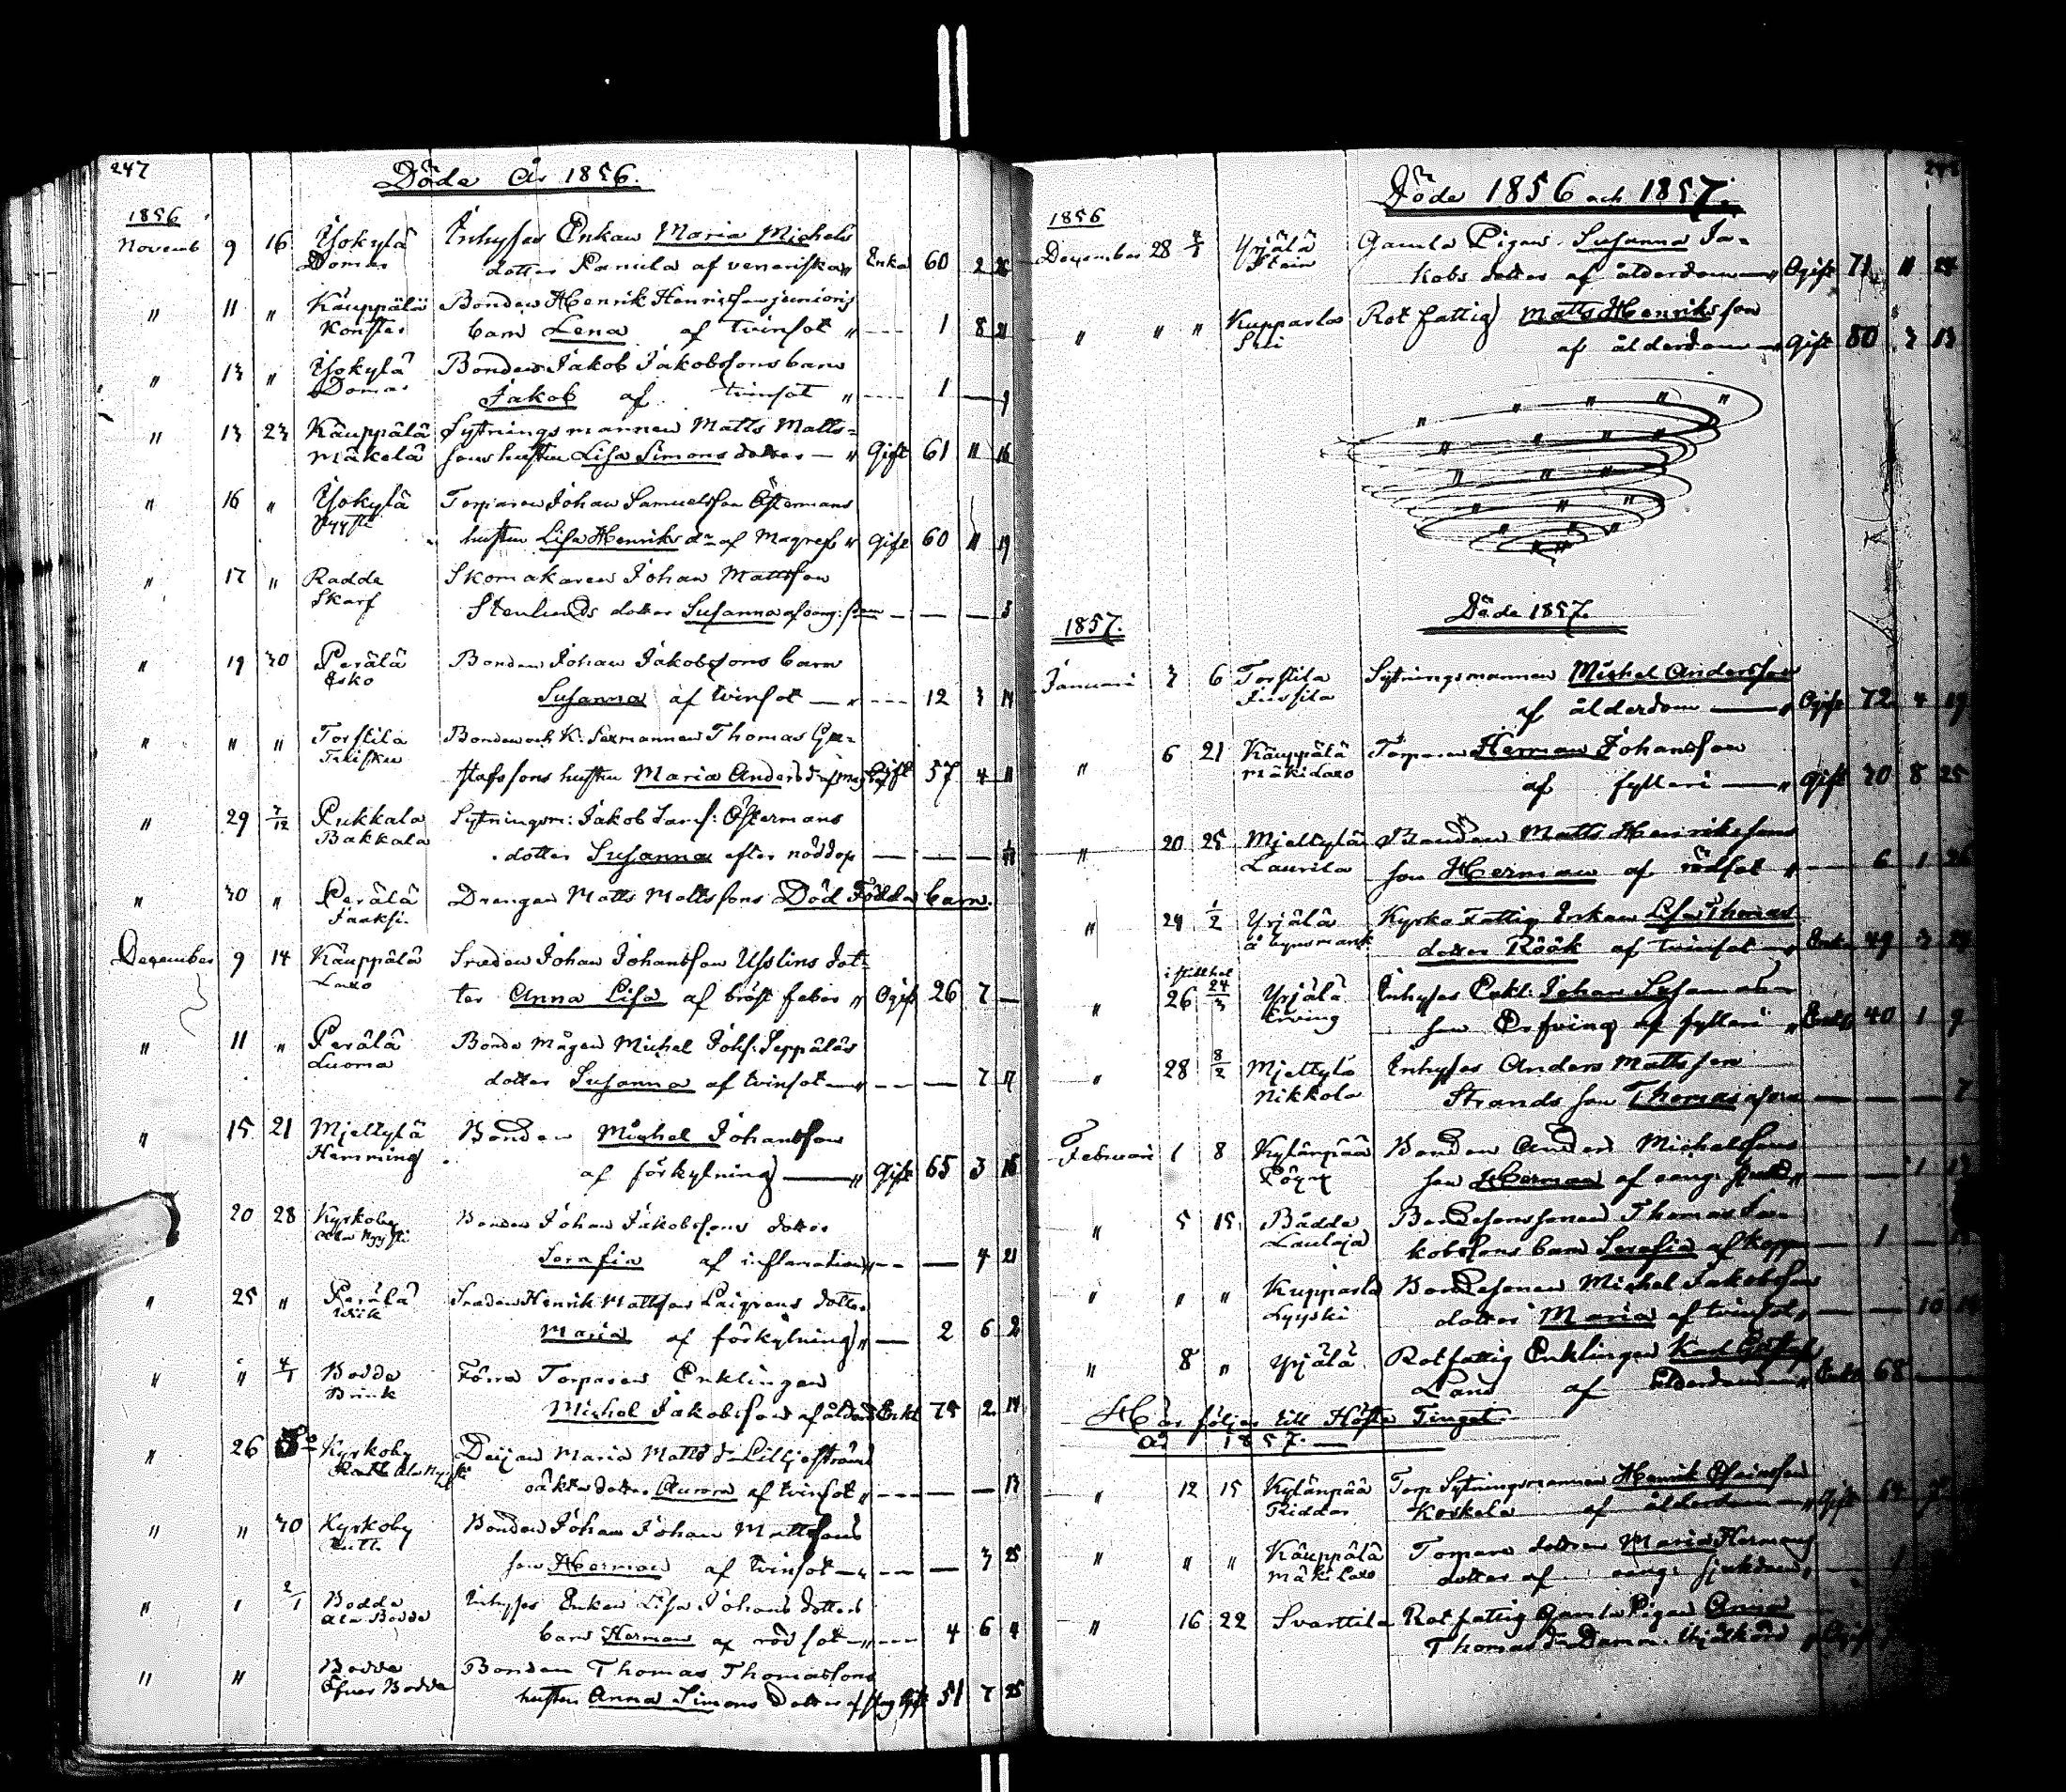 247
Döde År 1856.
1856
Novemb 9 16 Ÿokylä Inhyses Enkan Maria Michels
Domar dotter Panula af veneriska " Enka 60 2 26
" 11 " Käuppälä Bonden Henrik Henrikssons junioris
barn Lena af tvinsot " 1 8 21
" 13 " Ÿokylä Bonden Jakob Jakobssons barn
Domar Jakob af tvinsot " 1 — 9
" 13 23 Käuppälä Sytningsmannen Matts Matts-
Mäkelä sons hustru Lisa Simons dotter — " Gift 61 11 16
" 16 " Ÿokylä Torparen Johan Samuelsson Östermans
hustru Lisa Henriks dr af Magref " Gift 60 11 19
" 17 " Radde Skomakaren Johan Mattsson
Skarf Stenlunds dotter Susanna — — — 3
" 19 30 Perälä Bonden Johan Jakobssons barn
Esko Susanna af tvinsot — " 12 3 14
" " " Torstila Bonden och K: Sexmannen Thomas Gu-
stafssons hustru Maria Anders d af Gift 57 4 11
" 29 3/12 Pukkala Sytningsm: Jakob Östermans
Bakkala dotter Susanna efter nöddop — — —
" 30 " Perälä Drengen Matts Mattssons Död Födda barn.
Jaaksi.
December 9 14 Käuppälä Smeden Johan Johansson Usslins dot-
Laxo ter Anna Lisa af bröst feber " Ogift 26 7 —
" 11 " Perälä Bonde Mågen Michel Johs: Seppäläs
Luoma dotter Susanna af tvinsot — " — 7 17
" 15 21 Mjeltylä Bonden Michel Johansson
Hemming af förkylning — " Gift 65 3 16
20 28 Kyrkoby Bonden Johan Jakobssons dotter
Serafia af inflamation " — 4 21
" 25 " Perälä Smeden Henrik Mattssons dotter
Wiik Maria af förkylning " — 2 6 2
" " 4/1 Bodde Förra Torparen Enklingen
Brink Michel Jakobsson af ålderd Enkl 75 2 14
" 26 Kyrkoby Deijan Maria Matts dr Lilljeströms
oäkta dotter Aurora af tvinsot " — — 13
" " 30 Kyrkoby Bonden Johan Johan Mattssons
son Herman af tvinsot — " — 3 25
" " 2/1 Bodde Inhyses Enkan Lisa Johans dotters
Ala Bodde barn Herman af röd sot — " 4 6 4
" " Bodde Bonden Thomas Thomassons
Öfver Bodde hustru Anna Simons dotter af Gift 51 7 25
Döde 1856 och 1857.
1856
December 28 4/1 Yrjälä Gamla Pigan Susanna Ja-
Stein kobs dotter af ålderdom — " Ogift 71 11 24
" " " Kupparla Rot fattig Matts Henriksson
af ålderdom — " Gift 80 3 13
Döde 1857.
1857.
Januari 3 6 Torstila Sytningsmannen Michel Andersson
Jussila af ålderdom — " Ogift 72 4 19
" 6 21 Käuppälä Torparen Herman Johansson
Mäkilaxo af fylleri — " Gift 30 8 25
" 20 25 Mjeltylä Bonden Matts Henrikssons
Laurila son Herman af rödsot " — 6 1 26
" 24 1/2 Yrjälä Kyrko Fattig Enkan Lisa Thomas
dotter Röök af tvinsot — " Enka 49 3 24
" 26 24/3 Yrjälä Inhyses Enkl: Johan
Erving son Erfving af fylleri " Enkl 40 1 9
" 28 8/2 Mjeltylä Inhyses Anders Mattsson
Nikkola Strands son Thomas — — — 7
Februari 1 8 Kylänpää Bonden Anders Michelssons
son Herman af — — 1
" 5 15 Bädde Bondesonssonen Thomas Ja-
Laulaja kobssons barn Serafia af koppor — 1 —
" " " Kupparla Bondesonen Michel Jakobsson
Lyyski dotter Maria af tvinsot " — — 10
" 8 " Yrjälä Rotfattig Enklingen Karl Gustaf
Lans af ålderdom — " Enkl 68 —
Här följer till Hösta Tinget
åd 1857. —
" 12 15 Kylänpää Torp Sytningsmannen Henrik
Riddar Koskela af ålderdom — " Gift 64
" " " Käuppälä Torpare dottren Maria Hermans
Mäkilaxo dotter af sjukdom "
" 16 22 Svarttila Rot fattig Gamla Pigan Anna
Thomas dr